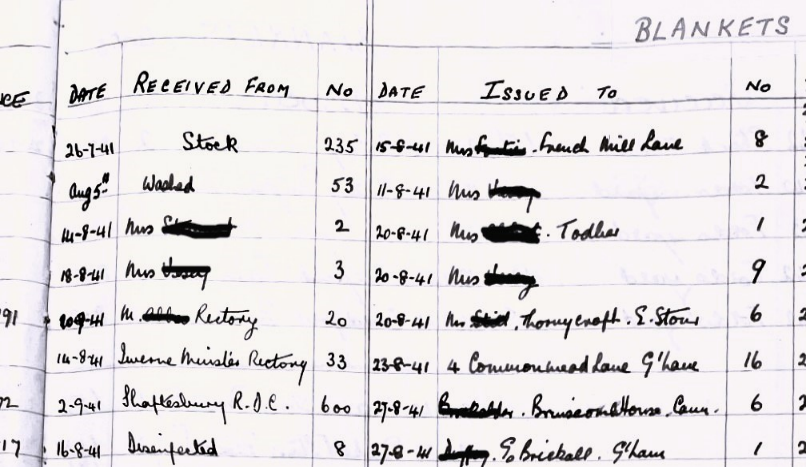 BLANKETS
DATE RECEIVED FROM No DATE ISSUED TO No
26-7-41 Stock 235 15-8-41 Mrs French Mill Lane 8
Aug 5th Washed 53 11-8-41 Mrs 2
14-8-41 Mrs 2 20-8-41 Mrs . Todber 1
18-8-41 Mrs 3 20-8-41 Mrs 9
91 M. Rectory 20 20-8-41 Thornycroft. E. Stour 6
14-8-41 Iwerne Minster Rectory 33 23-8-41 4 Commonmead Lane G'ham 16
2-9-41 Shaftesbury R.D.C. 600 27-8-41 House. 6
17 16-8-41 Disinfected 8 27-8-41 Brickell. G'ham 1